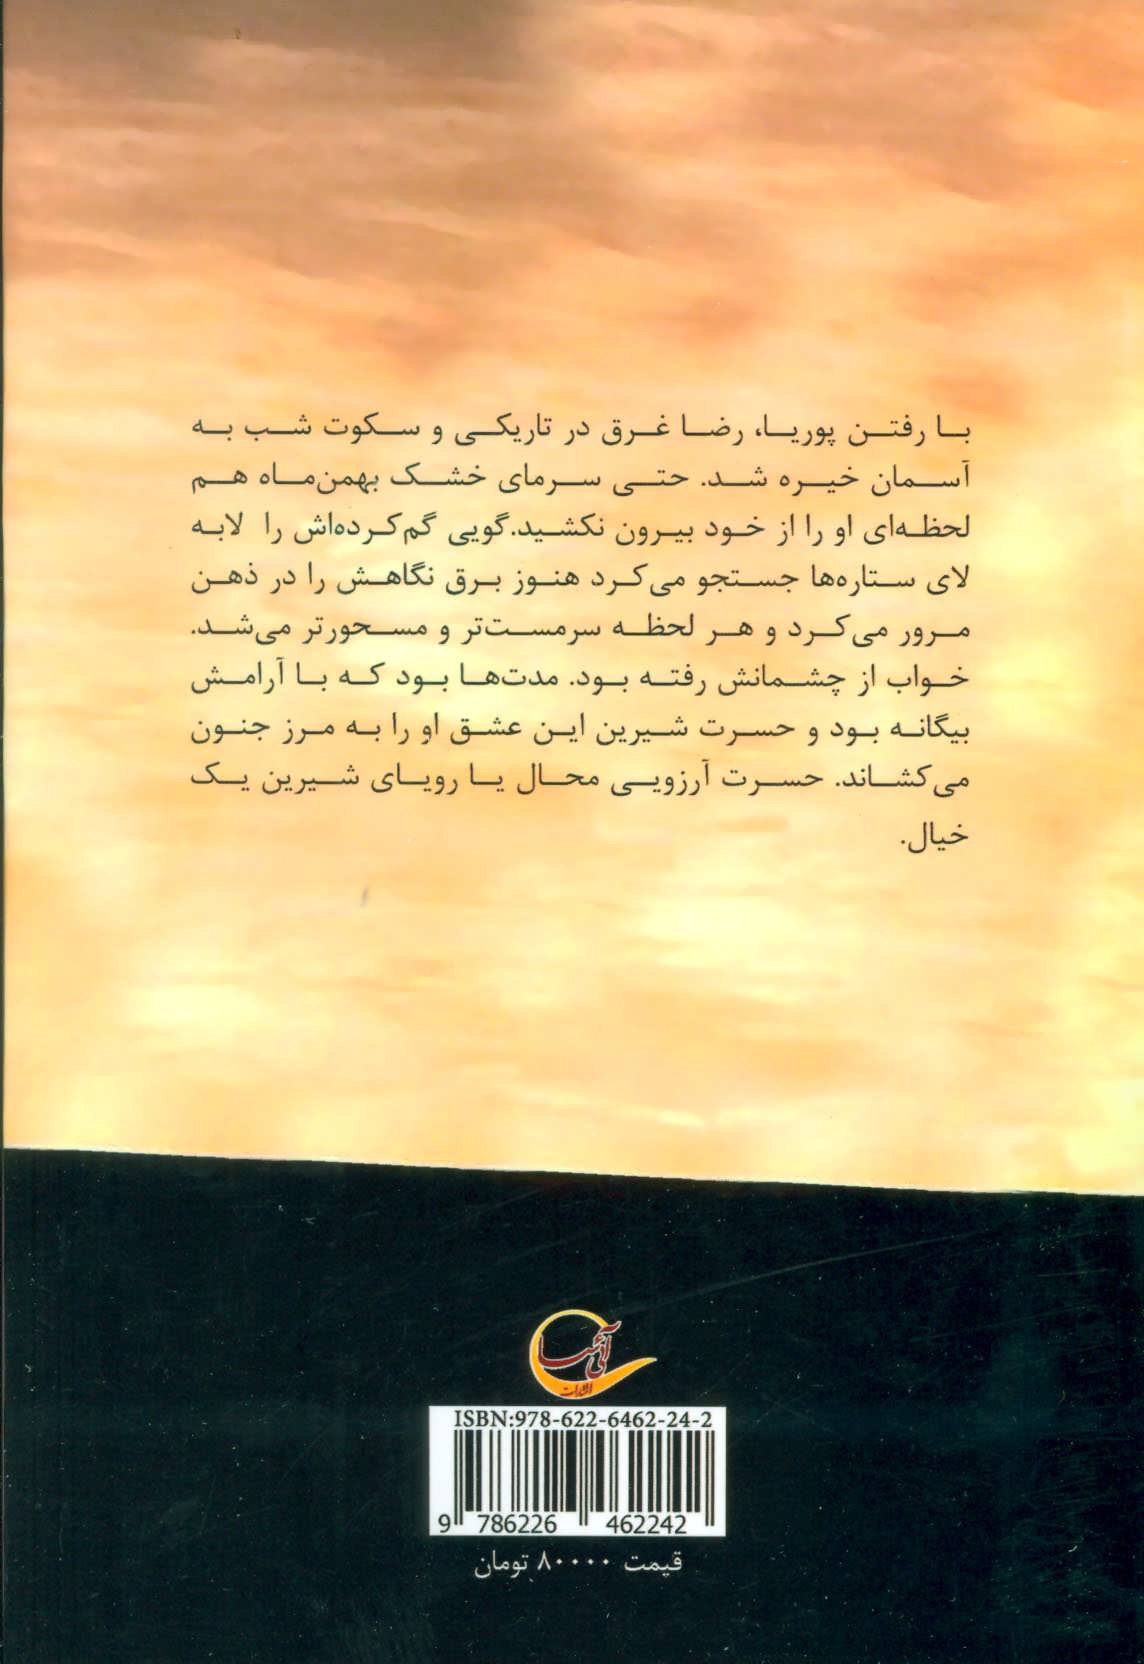 با رفتن پوریا، رضا غرق در تاریکی و سکوت شب به
آسمان خیره شد. حتی سرمای خشک بهمن‌ماه هم
لحظه‌ای او را از خود بیرون نکشید.گویی گم‌کرده‌اش را لابه
لای ستاره‌ها جستجو می‌کرد هنوز برق نگاهش را در ذهن
مرور می‌کرد و هر لحظه سرمست‌تر و مسحورتر می‌شد.
خواب از چشمانش رفته بود. مدت‌ها بود که با آرامش
بیگانه بود و حسرت شیرین این عشق او را به مرز جنون
می‌کشاند. حسرت آرزویی محال یا رویای شیرین یک
خیال.
انتشارات
ISBN:978-622-6462-24-2
9 786226 462242
قیمت ۸۰۰۰۰ تومان